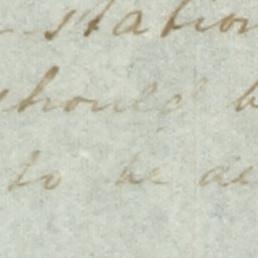 station
should b
to be de